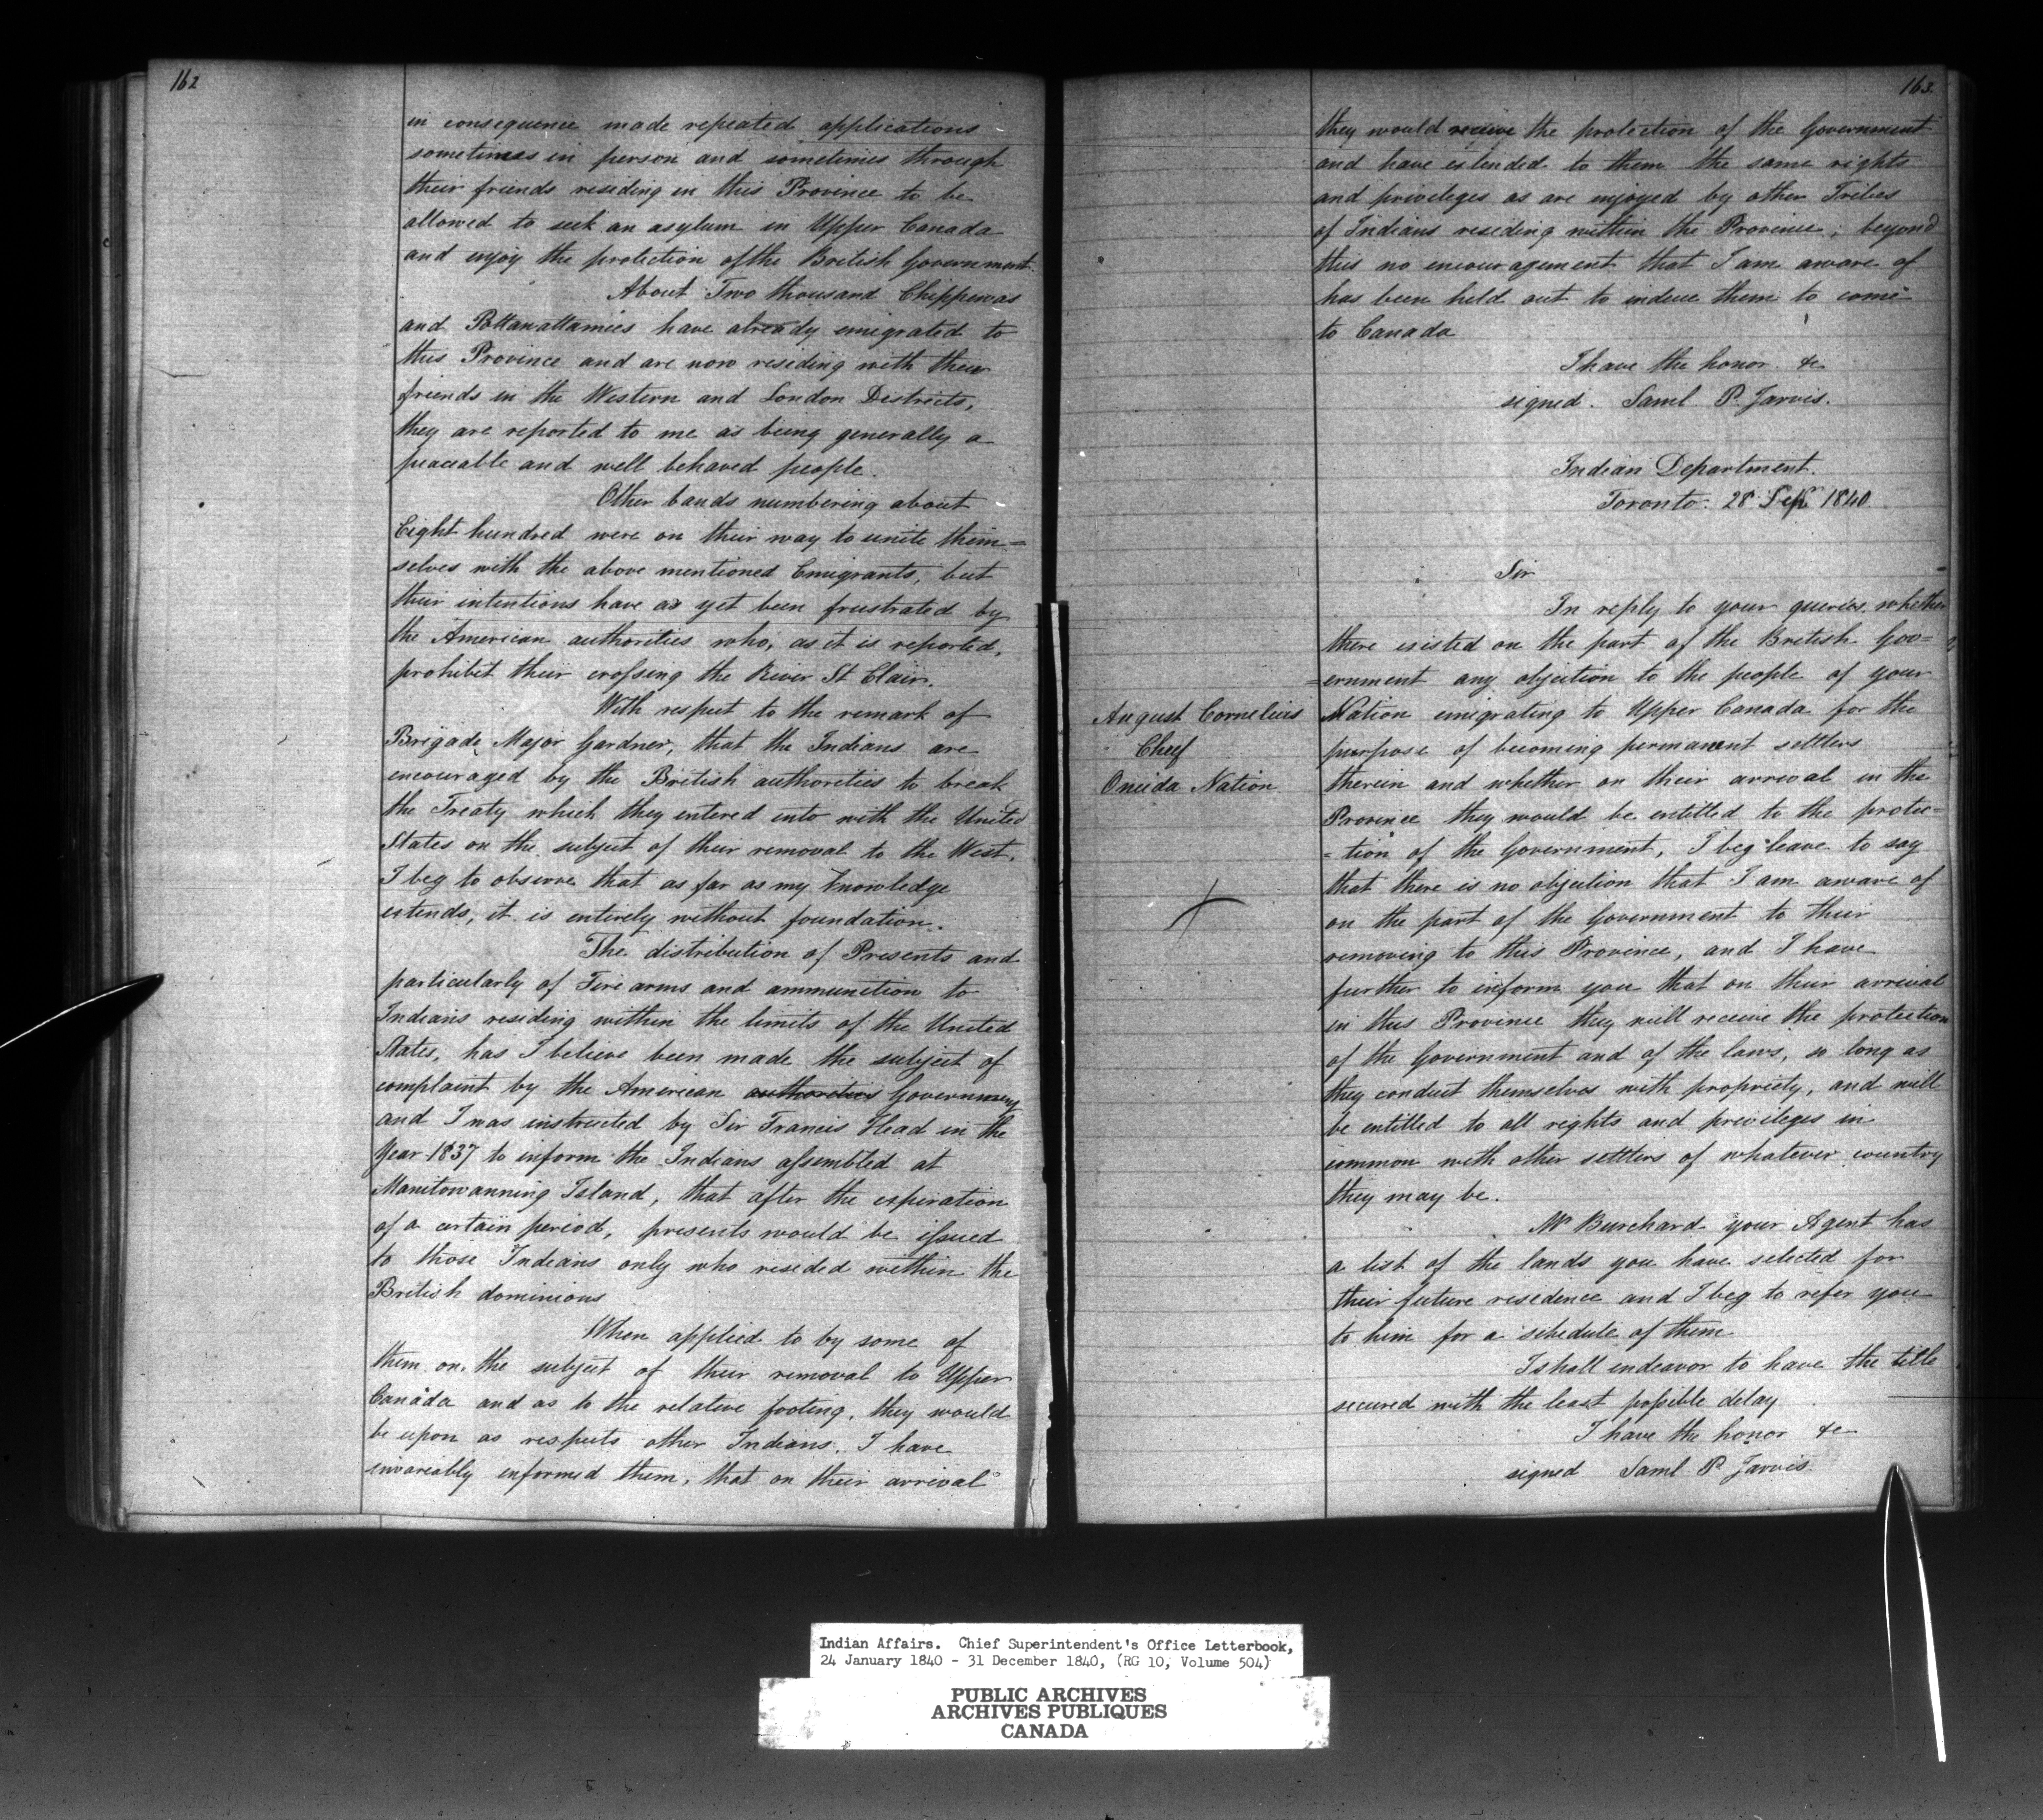 162
in consequence made repeated applications
sometimes in person and sometimes through
their friends residing in this Province to be
allowed to seek an asylum in Upper Canada
and enjoy the protection of the British Government.
About Two thousand Chippewas
and Pottawattamies have already emigrated to
this Province and are now residing with their
friends in the Western and London Districts,
they are reported to me as being generally a
peaceable and well behaved people.
Other bands numbering about
Eight hundred were on their way to unite them=
selves with the above mentioned Emigrants, but
their intentions have as yet been frustrated by
the American authorities who, as it is reported,
prohibit their crossing the River St Clair.
With respect to the remark of
Brigade Major Gardner, that the Indians are
encouraged by the British authorities to break
the Treaty which they entered into with the United
States on the subject of their removal to the West,
I beg to observe that as far as my knowledge
extends, it is entirely without foundation.
The distribution of Presents and
particularly of Fire arms and ammunition to
Indians residing within the limits of the United
States, has I believe been made the subject of
complaint by the American authorities Government
and I was instructed by Sir Francis Head in the
Year 1837 to inform the Indians assembled at
Manitowanning Island, that after the expiration
of a certain period, presents would be issued
to those Indians only who resided within the
British dominions
When applied to by some of
them on the subject of their removal to Upper
Canada and as to the relative footing, they would
be upon as respects other Indians. I have
invariably informed them, that on their arrival
163.
they would receive the protection of the Government
and have extended to them the same rights
and privileges as are enjoyed by other Tribes
of Indians residing within the Province; beyond
this no encouragement that I am aware of
has been held out to induce them to come
to Canada
I have the honor &c
signed. Saml P. Jarvis.
Indian Department.
Toronto. 28 Sep 1840
Sir
In reply to your queries whether
there existed on the part of the British Gov=
=ernment any objection to the people of your
August Cornelius
Chief
Oneida Nation
Nation emigrating to Upper Canada for the
purpose of becoming permanent settlers
therein and whether on their arrival in the
Province they would be entitled to the protec=
=tion of the Government, I beg leave to say
that there is no objection that I am aware of
on the part of the Government to their
removing to this Province, and I have
further to inform you that on their arrival
in this Province they will receive the protection
of the Government and of the laws, so long as
they conduct themselves with propriety, and will
be entitled to all rights and privileges in
common with other settlers of whatever country
they may be.
Mr Burchard your Agent has
a list of the lands you have selected for
their future residence and I beg to refer you
to him for a schedule of them
I shall endeavor to have the title
secured with the least possible delay
I have the honor &c
signed Saml P. Jarvis.
Indian Affairs. Chief Superintendent's Office Letterbook,
24 January 1840 - 31 December 1840, (RG 10, Volume 504)
PUBLIC ARCHIVES
ARCHIVES PUBLIQUES
CANADA